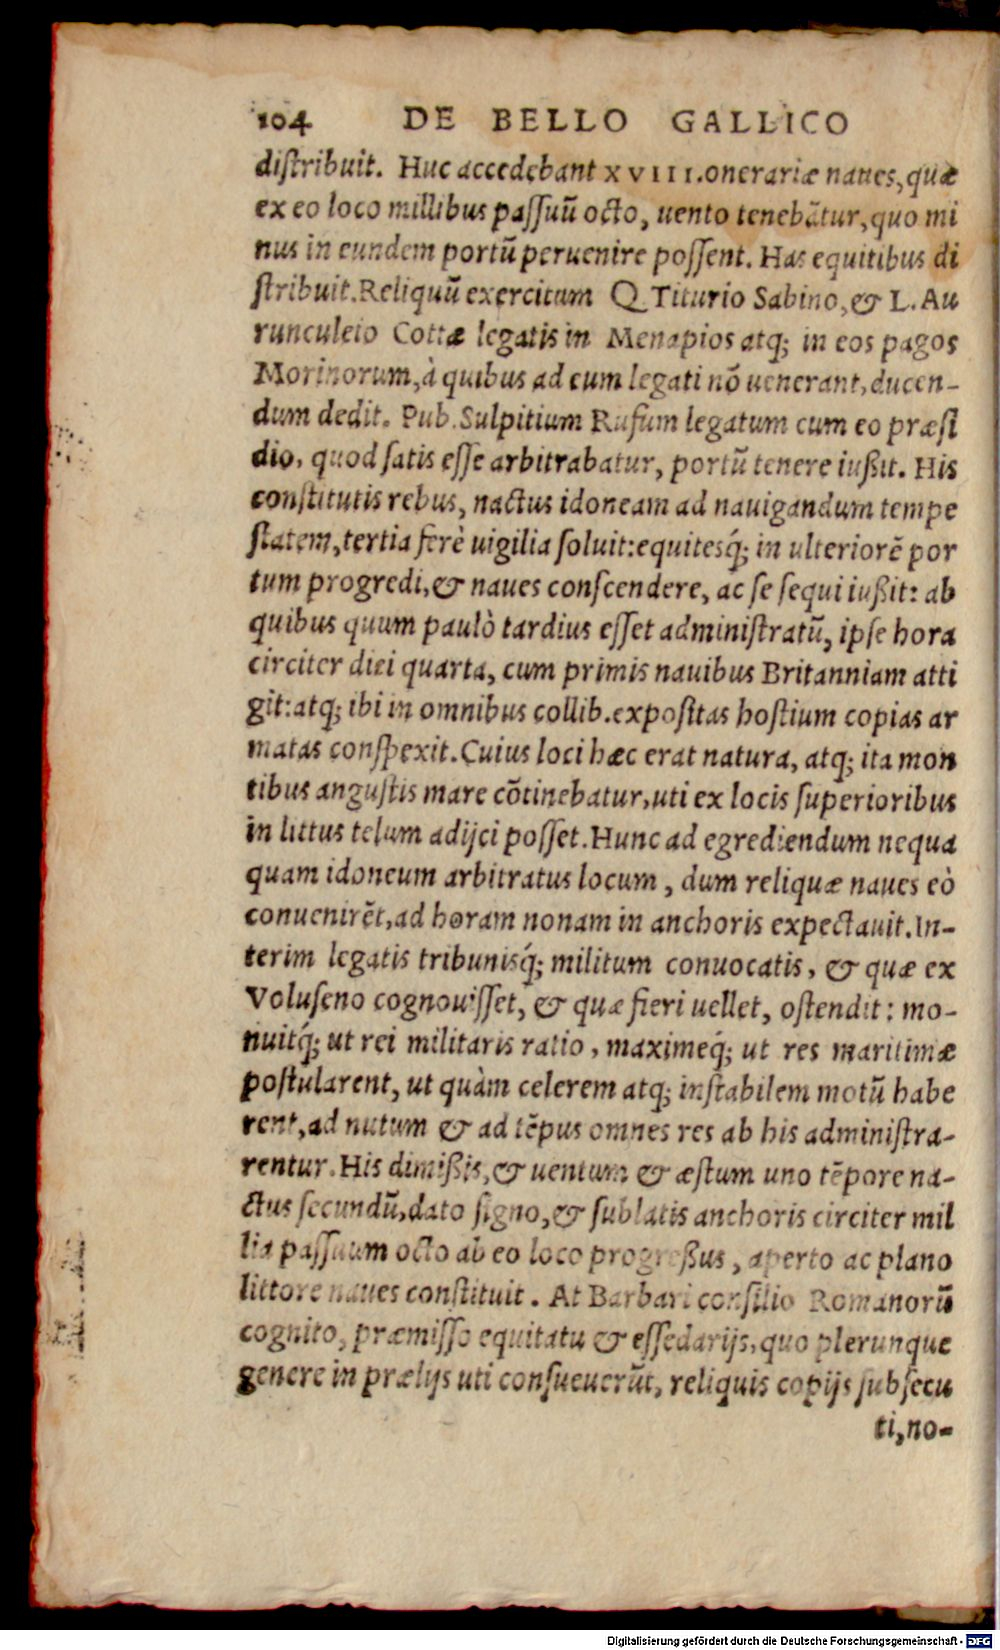 104 DE BELLO GALLICO
diſtribuit. Huc accedebant XVIII. onerariæ naues, quæ
ex eo loco millibus paſſuū octo, uento tenebātur, quo mi
nus in eundem portū peruenire poſſent. Has equitibus di
ſtribuit. Reliquū exercitum Q Titurio Sabino, & L. Au
runculeio Cottæ legatis in Menapios atq; in eos pagos
Morinorum, à quibus ad eum legati nō uenerant, ducen-
dum dedit. Pub. Sulpitium Rufum legatum cum eo præſi
dio, quod ſatis eſſe arbitrabatur, portū tenere iußit. His
conſtitutis rebus, nactus idoneam ad nauigandum tempe
ſtatem, tertia ferè uigilia ſoluit: equitesq́; in ulteriorē por
tum progredi, & naues conſcendere, ac ſe ſequi iußit: ab
quibus quum paulò tardius eſſet adminiſtratū, ipſe hora
circiter diei quarta, cum primis nauibus Britanniam atti
git: atq; ibi in omnibus collib. expoſitas hoſtium copias ar
matas conſpexit. Cuius loci hæc erat natura, atq; ita mon
tibus anguſtis mare cōtinebatur, uti ex locis ſuperioribus
in littus telum adijci poſſet. Hunc ad egrediendum nequa
quam idoneum arbitratus locum, dum reliquæ naues eò
conuenirēt, ad horam nonam in anchoris expectauit. In-
terim legatis tribunisq́; militum conuocatis, & quæ ex
Voluſeno cognouiſſet, & quæ fieri uellet, oſtendit: mo-
nuitq́; ut rei militaris ratio, maximeq́; ut res maritimæ
poſtularent, ut quàm celerem atq; inſtabilem motū habe
rent, ad nutum & ad tēpus omnes res ab his adminiſtra-
rentur. His dimißis, & uentum & æſtum uno tēpore na-
ctus ſecundū, dato ſigno, & ſublatis anchoris circiter mil
lia paſſuum octo ab eo loco progreßus, aperto ac plano
littore naues conſtituit. At Barbari conſilio Romanorū
cognito, præmiſſo equitatu & eſſedarijs, quo plerunque
genere in prælijs uti conſueuerūt, reliquis copijs ſubſecu
ti, no-
Digitalisierung gefördert durch die Deutsche Forschungsgemeinschaft - DFG